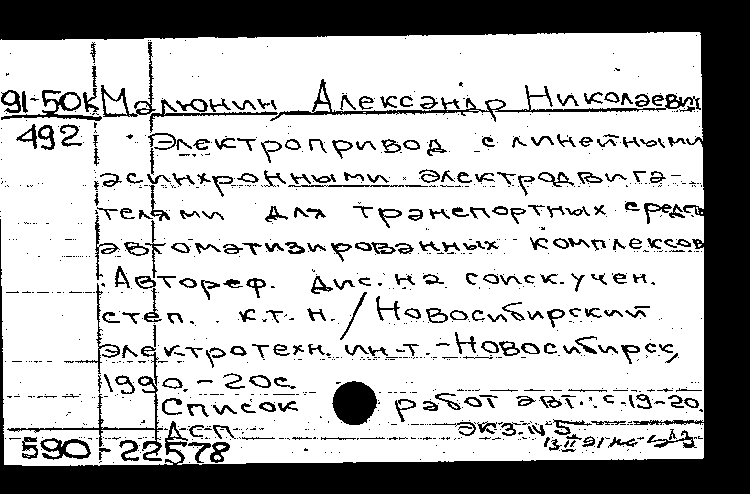 91-50к Малюнин, Александр Николаевич
492 Электропривод с линейными
асинхронными электродвига-
телями для транспортных средств
автоматизированных комплексов
: Автореф. дис. на соиск. учен.
степ. к.т.н. / Новосибирский
электротехн. ин-т. - Новосибирск,
1990. - 20с.
Список работ авт.: с.19-20.
ДСП экз. № 5
590-22578 13 II 91